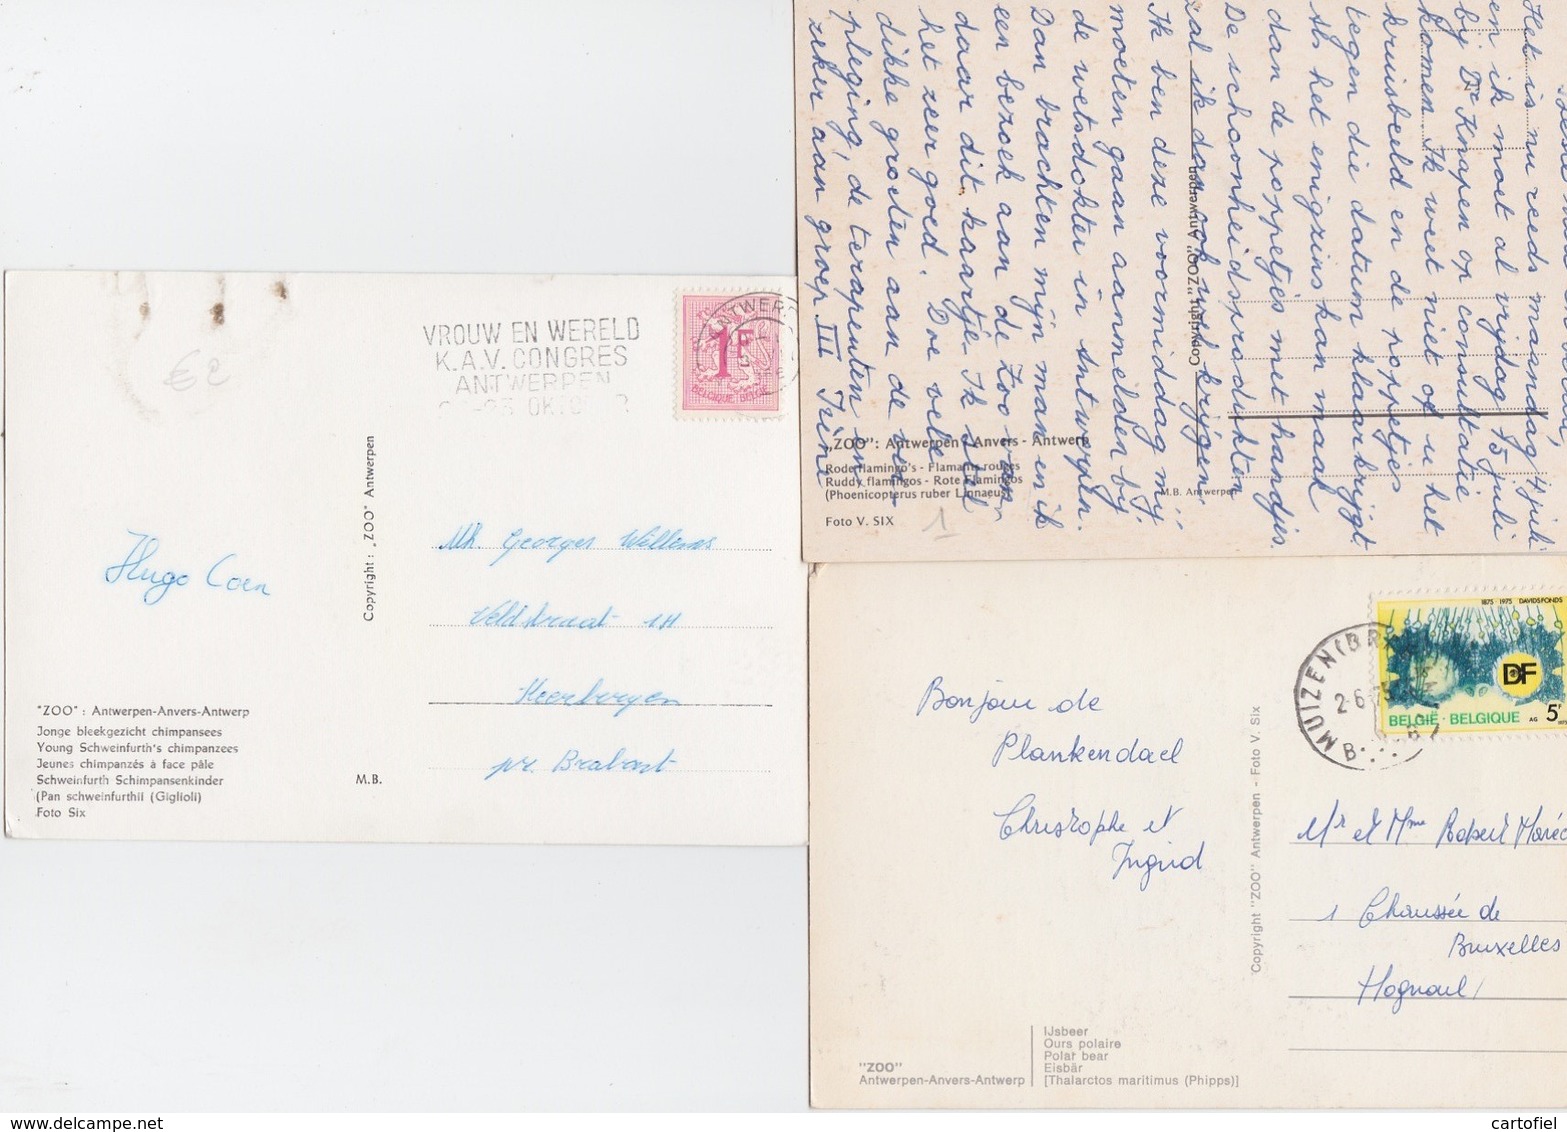 VROUW EN WERELD
K.A.V. CONGRES
ANTWERPEN
OKTOBER
1F
BELGIQUE BELGIE
€2
Copyright : „ZOO" Antwerpen
Hugo Coen
Mh. Georges Willems
Veldstraat 1H
Keerbergen
pr. Brabant
"ZOO" : Antwerpen-Anvers-Antwerp
Jonge bleekgezicht chimpansees
Young Schweinfurth's chimpanzees
Jeunes chimpanzés à face pâle
Schweinfurth Schimpansenkinder
(Pan schweinfurthii (Giglioli)
Foto Six
M.B.
Het is nu reeds maandag 14 juli
en ik moet al vrijdag 15 juli
bij Dr Knapen op consultatie
komen. Ik weet niet of u het
kruisbeeld en de poppetjes
tegen die datum klaarkrijgt
Als het enigzins kan maak
dan de poppetjes met handjes.
De schoonheidsprodukten
zal ik dan ook wel krijgen.
Ik ben deze voormiddag mij
moeten gaan aanmelden bij
de wetsdokter in Antwerpen.
Dan brachten mijn man en ik
een bezoek aan de Zoo van
daar dit kaartje. Ik stel
het zeer goed. Doe vele
dikke groeten aan de ver-
pleging, de terapeuten en
zeker aan groep III Trine
Copyright „ZOO" Antwerpen
„ZOO": Antwerpen - Anvers - Antwerp
Rode flamingo's - Flamants rouges
Ruddy flamingos - Rote Flamingos
(Phoenicopterus ruber Linnaeus)
M.B. Antwerpen
Foto V. SIX
1
1875 1975 DAVIDSFONDS
DF
BELGIË - BELGIQUE AG 5F
MUIZEN (BR)
2-6-75
B
Bonjour de
Plankendael
Christophe et
Ingrid
Copyright "ZOO" Antwerpen - Foto V. Six
Mr et Mme Robert Maréc
1 Chaussée de
Bruxelles
Hognoul
IJsbeer
Ours polaire
Polar bear
Eisbär
[Thalarctos maritimus (Phipps)]
"ZOO"
Antwerpen-Anvers-Antwerp
www.delcampe.net
cartofiel